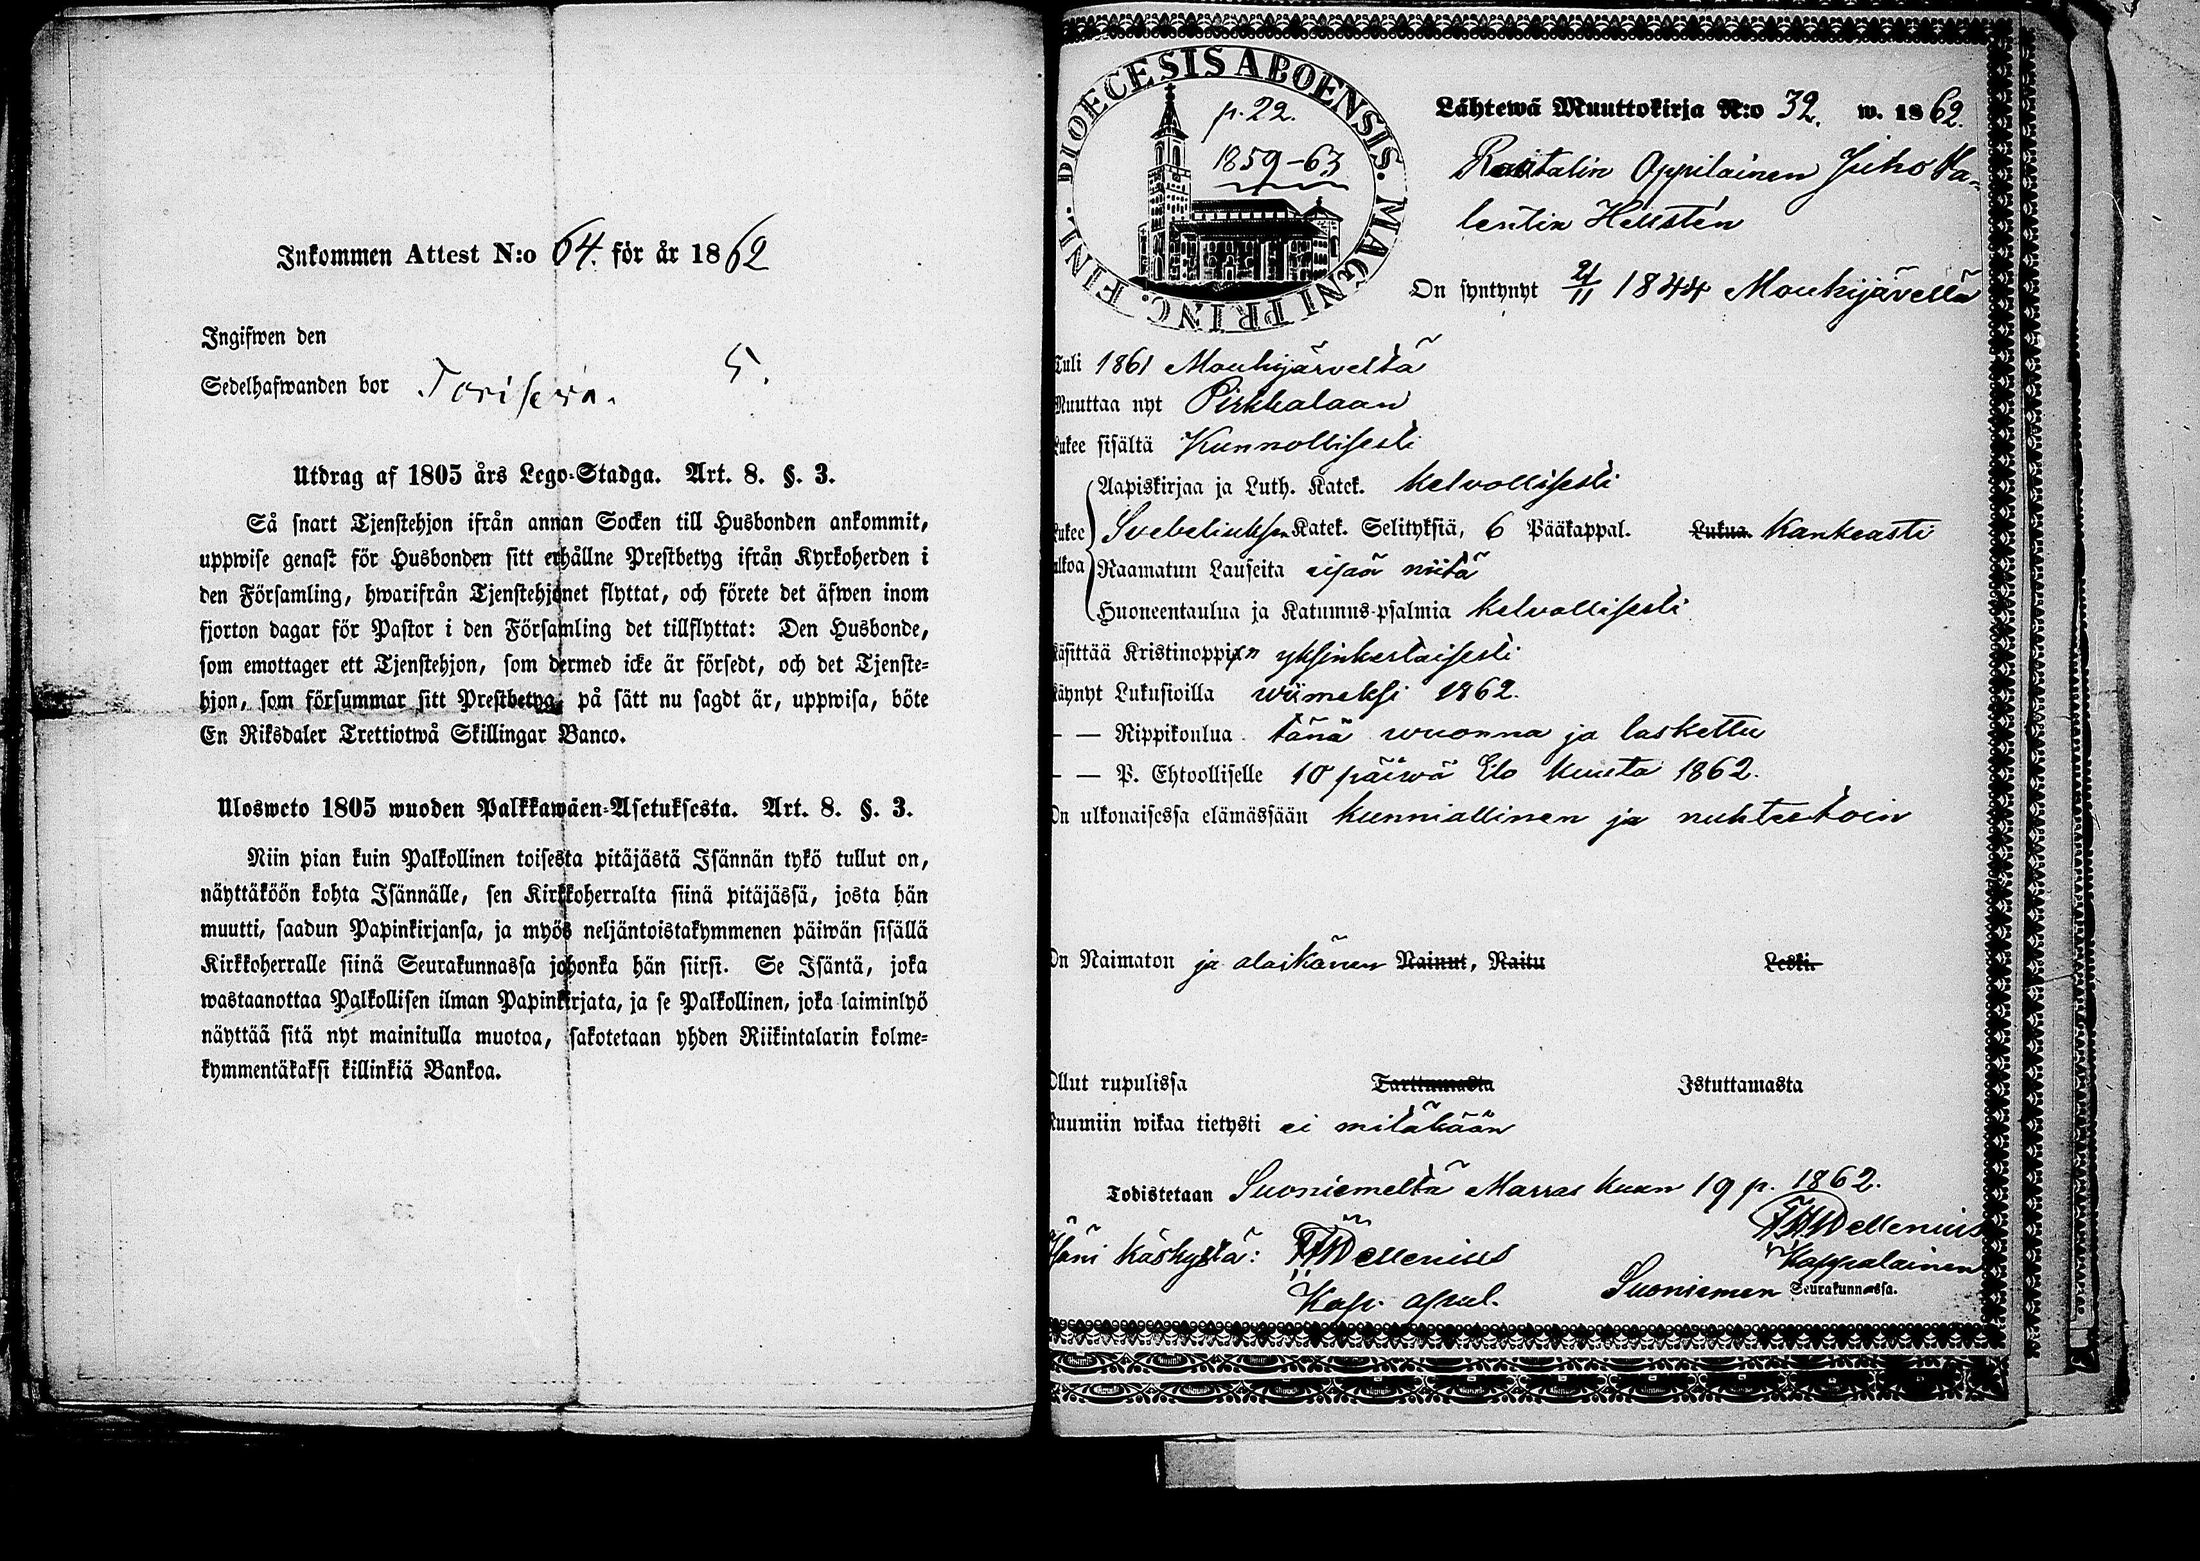 Inkommen Attest N:o 64. för år 1862
Ingifwen den
Sedelhafwanden bor Torisewa. 5.
Utdrag af 1805 års Lego-Stadga. Art. 8. §. 3.
Så snart Tjenstehjon ifrån annan Socken till Husbonden ankommit,
uppwise genast för Husbonden sitt erhållne Prestbetyg ifrån Kyrkoherden i
den Församling, hwarifrån Tjenstehjonet flyttat, och förete det äfwen inom
fjorton dagar för Pastor i den Församling det tillflyttat: Den Husbonde,
som emottager ett Tjenstehjon, som dermed icke är försedt, och det Tjenste-
hjon, som försummar sitt Prestbetyg, på sätt nu sagdt är, uppwisa, böte
En Riksdaler Trettiotwå Skillingar Banco.
Ulosweto 1805 wuoden Palkkawäen-Asetuksesta. Art. 8. §. 3.
Niin pian kuin Palkollinen toisesta pitäjästä Isännän tykö tullut on,
näyttäköön kohta Isännälle, sen Kirkkoherralta siinä pitäjässä, josta hän
muutti, saadun Papinkirjansa, ja myös neljäntoistakymmenen päiwän sisällä
Kirkkoherralle siinä Seurakunnassa johonka hän siirsi. Se Isäntä, joka
wastaanottaa Palkollisen ilman Papinkirjata, ja se Palkollinen, joka laiminlyö
näyttää sitä nyt mainitulla muotoa, sakotetaan yhden Riikintalarin kolme-
kymmentäkaksi killinkiä Bankoa.
DIOECESIS ABOENSIS. MAGNI PRINC. FINL.
p. 22.
1859-63
Lähtewä Muuttokirja N:o 32. w. 1862.
Räätälin Oppilainen Juho Wa-
lentin Hellstén
On syntynyt 21/11 1844 Mouhijärvellä
Tuli 1861 Mouhijärveltä
Muuttaa nyt Pirkkalaan
Lukee sisältä Kunnollisesti
Aapiskirjaa ja Luth. Katek. kelvollisesti
Lukee Svebeliuksen Katek. Selityksiä, 6 Pääkappal. Lukua Kankeasti
ulkoa Raamatun Lauseita sijaa niitä
Huoneentaulua ja Katumus-psalmia kelvollisesti
Käsittää Kristinoppin yksinkertaisesti
Käynyt Lukusioilla wiimeksi 1862.
— — Rippikoulua tänä wuonna ja laskettu
— — P. Ehtoolliselle 10 päiwä Elo kuuta 1862.
On ulkonaisessa elämässään kunniallinen ja nuhteetoin
On Naimaton ja alaikänen Nainut, Raitu Leski.
Ollut rupulissa Tarttumasta Istuttamasta
Ruumiin wikaa tietysti ei mitäkään
Todistetaan Suoniemeltä Marras kuun 19 p. 1862.
käskystä: Wellenius
Wellenius
Kappalainen
Kap. apul.
Suoniemen Seurakunnassa.